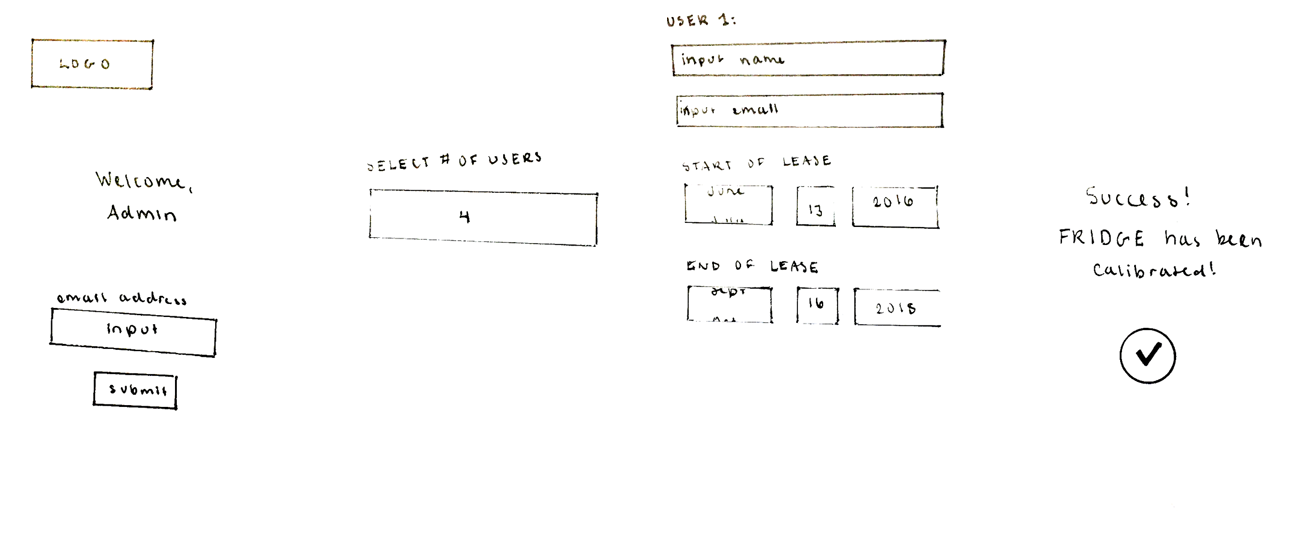 LOGO
Welcome,
Admin
email address
input
submit
SELECT # OF USERS
4
USER 1:
input name
input email
START OF LEASE
June
13
2016
END OF LEASE
Sept
16
2018
Success!
FRIDGE has been
calibrated!